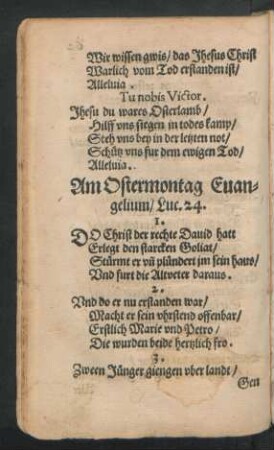 Wir wissen gwis / das Jhesus Christ
Warlich vom Tod erstanden ist /
Alleluia.
Tu nobis Victor.
Jhesu du wares Osterlamb /
Hilff vns sitgen in todes kamp /
Steh vns bey in der letzten not /
Schütz vns fur dem ewigen Tod /
Alleluia.
Am Ostermontag Euan-
gelium / Luc. 24.
1.
DO Christ der rechte Dauid hatt
Erlegt den starcken Goliat /
Stürmt er vn̄ plündert jm sein haus /
Vnd furt die Altveter daraus.
2.
Vnd do er nu erstanden war /
Macht er sein vhrstend offenbar /
Erstlich Marie vnd Petro /
Die wurden beide hertzlich fro.
3.
Zween Jünger giengen vber landt /
Gen